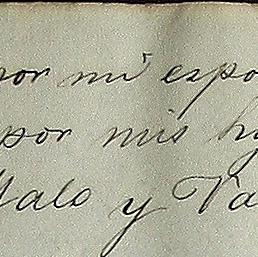 por mi espo
por mis hi
Malo y Va